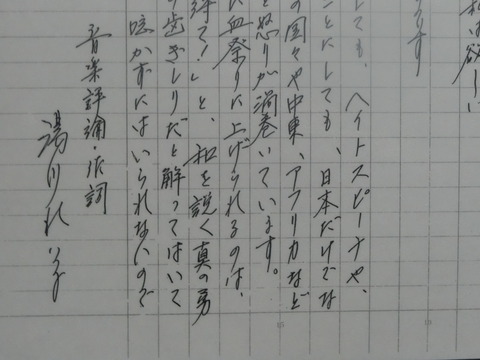 私は欲しい
ります
しても、ヘイトスピーチや、
ことにしても、日本だけでな
の国々や中東、アフリカなど
と怒りが渦巻いています。
に血祭りに上げられるのは、
待て!」と、和を説く真の勇
り歯ぎしりだと解ってはいて
呟かずにはいられないので
音楽評論・作詞
湯川れい子